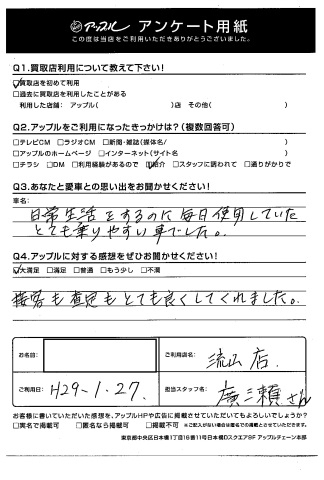 アップル アンケート用紙
この度は当店をご利用いただきありがとうございました。
Q1.買取店利用について教えて下さい!
☑買取店を初めて利用
□過去に買取店を利用したことがある
利用した店舗: アップル( )店 その他( )
Q2.アップルをご利用になったきっかけは?(複数回答可)
□テレビCM □ラジオCM □新聞・雑誌(媒体名/ )
□アップルのホームページ □インターネット(サイト名 )
□チラシ □DM □利用経験があるので ☑紹介 □スタッフに誘われて □通りがかりで
Q3.あなたと愛車との思い出をお聞かせください!
車名:
日常生活をするのに毎日使用していた
とても乗りやすい車でした。
Q4.アップルに対する感想をぜひお聞かせください!
☑大満足 □満足 □普通 □もう少し □不満
接客も査定もとても良くしてくれました。
お名前:
ご利用店名: 流山店.
ご利用日: H29-1-27.
担当スタッフ名: 廣瀬さん
お客様に書いていただいた感想を、アップルHPや広告に掲載させていただいてもよろしいでしょうか?
□実名で掲載可 □匿名なら掲載可 □掲載不可 ※ご記入がない場合は匿名での掲載とさせていただきます。
東京都中央区日本橋1丁目16番11号日本橋Dスクエア9F アップルチェーン本部